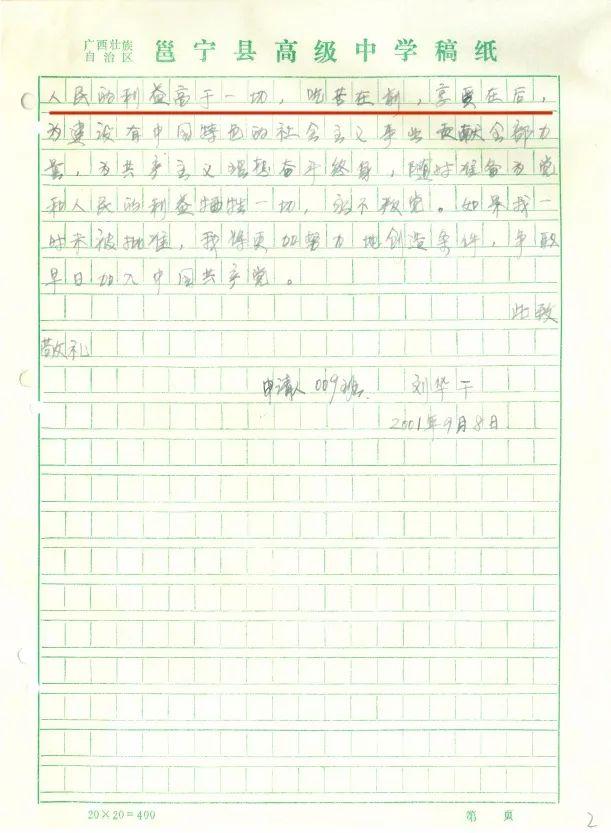 广西壮族
自治区
邕宁县高级中学稿纸
人民的利益高于一切，吃苦在前，享受在后，
为建设有中国特色的社会主义事业贡献全部力
量，为共产主义理想奋斗终身，随时准备为党
和人民的利益牺牲一切，永不叛党。如果我一
时未被批准，我将更加努力地创造条件，争取
早日加入中国共产党。
此致
敬礼
申请人 009班 刘华干
2001年9月8日
20×20=400
第 页
2